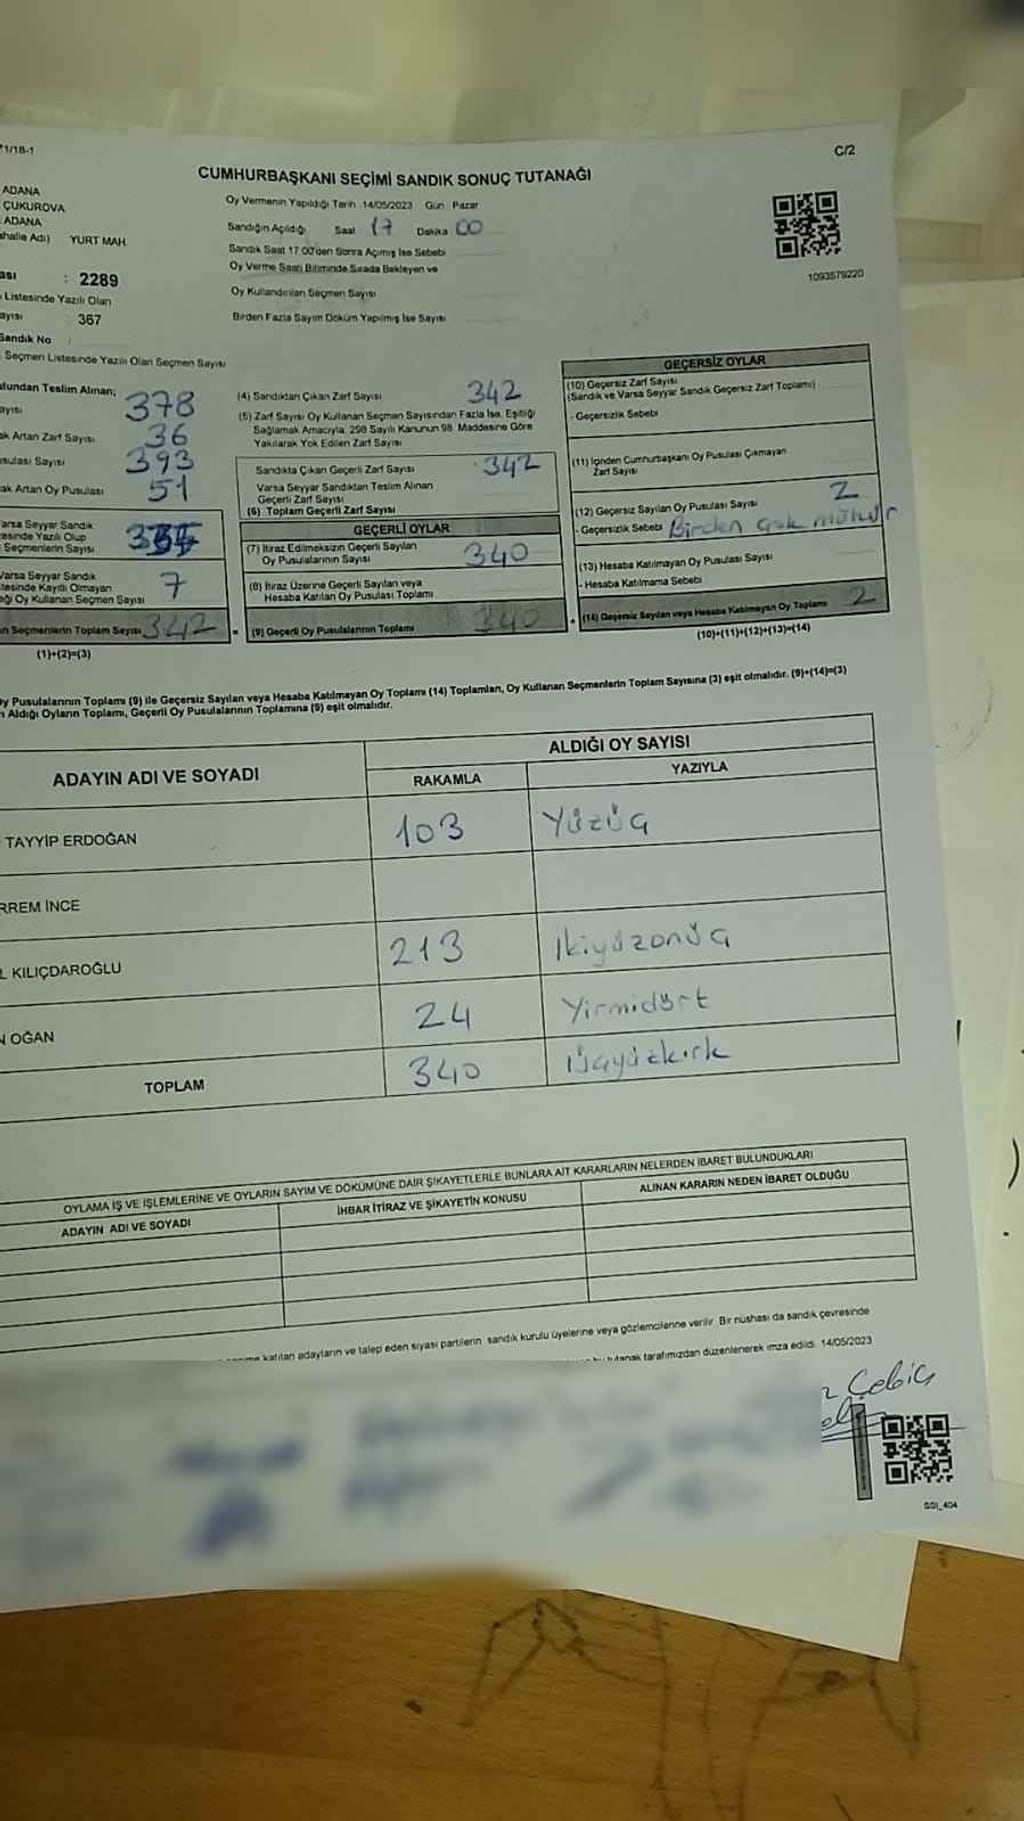 1/1B-1
C/2
CUMHURBAŞKANI SEÇİMİ SANDIK SONUÇ TUTANAĞI
ADANA
ÇUKUROVA
ADANA
halle Adı) YURT MAH.
ası : 2289
Listesinde Yazılı Olan
ayısı 367
Sandık No
Seçmen Listesinde Yazılı Olan Seçmen Sayısı
Oy Vermenin Yapıldığı Tarih :14/05/2023 Gün : Pazar
Sandığın Açıldığı Saat 17 Dakika 00
Sandık Saat 17.00'den Sonra Açılmış İse Sebebi
Oy Verme Saati Bitiminde Sırada Bekleyen ve
Oy Kullandırılan Seçmen Sayısı
Birden Fazla Sayım Döküm Yapılmış İse Sayısı
1093579220
ulundan Teslim Alınan;
ayısı 378
ak Artan Zarf Sayısı 36
usulası Sayısı 393
ak Artan Oy Pusulası 51
arsa Seyyar Sandık
esinde Yazılı Olup
Seçmenlerin Sayısı
Varsa Seyyar Sandık
tesinde Kayıtlı Olmayan
eği Oy Kullanan Seçmen Sayısı 7
n Seçmenlerin Toplam Sayısı 342
(1)+(2)=(3)
(4) Sandıktan Çıkan Zarf Sayısı 342
(5) Zarf Sayısı Oy Kullanan Seçmen Sayısından Fazla İse, Eşitliği
Sağlamak Amacıyla, 298 Sayılı Kanunun 98. Maddesine Göre
Yakılarak Yok Edilen Zarf Sayısı
Sandıkta Çıkan Geçerli Zarf Sayısı 342
Varsa Seyyar Sandıktan Teslim Alınan
Geçerli Zarf Sayısı
(6) Toplam Geçerli Zarf Sayısı
GEÇERLİ OYLAR
(7) İtiraz Edilmeksizin Geçerli Sayılan
Oy Pusulalarının Sayısı 340
(8) İtiraz Üzerine Geçerli Sayılan veya
Hesaba Katılan Oy Pusulası Toplamı
(9) Geçerli Oy Pusulalarının Toplamı 340
GEÇERSİZ OYLAR
(10) Geçersiz Zarf Sayısı
(Sandık ve Varsa Seyyar Sandık Geçersiz Zarf Toplamı)
- Geçersizlik Sebebi
(11) İçinden Cumhurbaşkanı Oy Pusulası Çıkmayan
Zarf Sayısı
(12) Geçersiz Sayılan Oy Pusulası Sayısı 2
- Geçersizlik Sebebi Birden çok mühür
(13) Hesaba Katılmayan Oy Pusulası Sayısı
- Hesaba Katılmama Sebebi
(14) Geçersiz Sayılan veya Hesaba Katılmayan Oy Toplamı 2
(10)+(11)+(12)+(13)=(14)
y Pusulalarının Toplamı (9) ile Geçersiz Sayılan veya Hesaba Katılmayan Oy Toplamı (14) Toplamları, Oy Kullanan Seçmenlerin Toplam Sayısına (3) eşit olmalıdır. (9)+(14)=(3)
n Aldığı Oyların Toplamı, Geçerli Oy Pusulalarının Toplamına (9) eşit olmalıdır.
ADAYIN ADI VE SOYADI
ALDIĞI OY SAYISI
RAKAMLA YAZIYLA
TAYYİP ERDOĞAN 103 Yüzüç
RREM İNCE
L KILIÇDAROĞLU 213 İkiyüzonüç
N OĞAN 24 Yirmidört
TOPLAM 340 Üçyüzkırk
OYLAMA İŞ VE İŞLEMLERİNE VE OYLARIN SAYIM VE DÖKÜMÜNE DAİR ŞİKAYETLERLE BUNLARA AİT KARARLARIN NELERDEN İBARET BULUNDUKLARI
ADAYIN ADI VE SOYADI
İHBAR İTİRAZ VE ŞİKAYETİN KONUSU
ALINAN KARARIN NEDEN İBARET OLDUĞU
katılan adayların ve talep eden siyasi partilerin sandık kurulu üyelerine veya gözlemcilerine verilir. Bir nüshası da sandık çevresinde
bu tutanak tarafımızdan düzenlenerek imza edildi. 14/05/2023
SDI_404